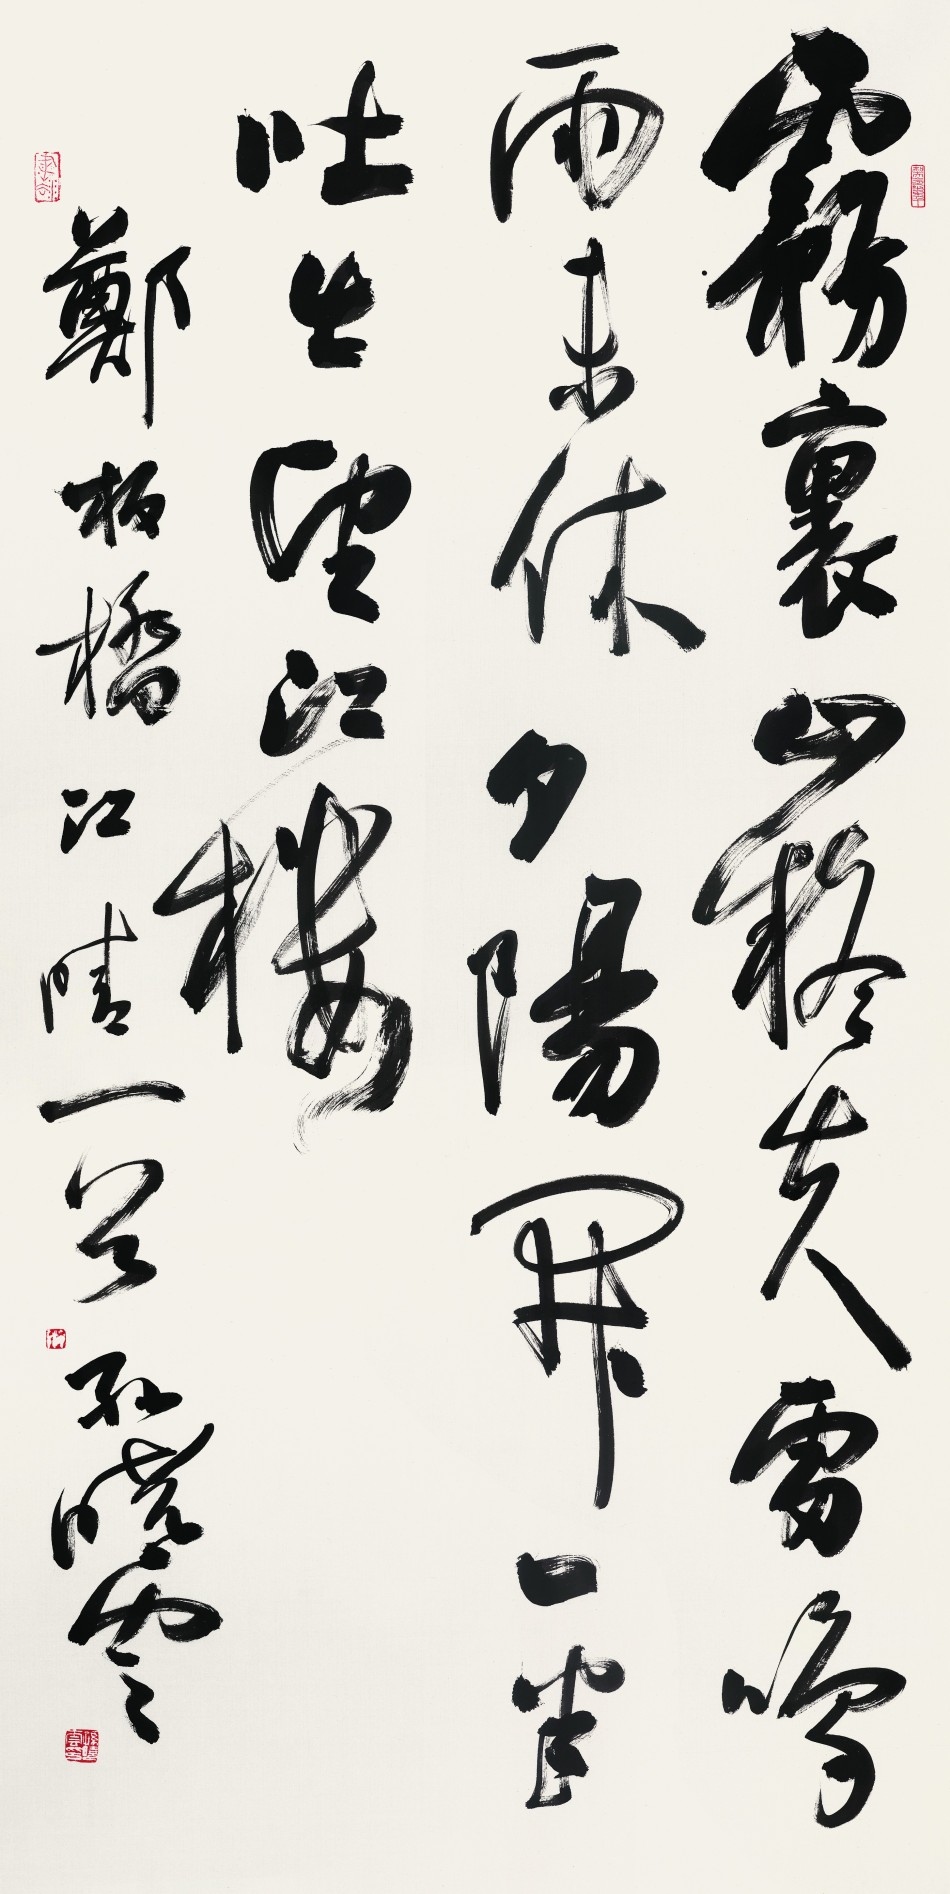 霧裏山疑失雷鳴
雨未休夕陽開一半
吐出望江樓
鄭板橋江晴一首
孫曉雲